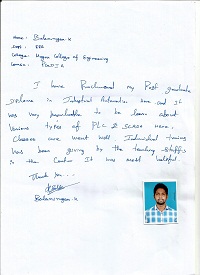 Name : Balamurugan.K
Dept : EEE
College : College of Engineering
Course : PGDIA
I have Purchased my Post graduate
Diploma in Industrial Automation here and it
was very to be learn about
Various types of PLC & SCADA here.
Classes are went well Individual training
was been giving by the teaching staffs
in the Centre It was most helpful.
Thank you...
Balamurugan.K